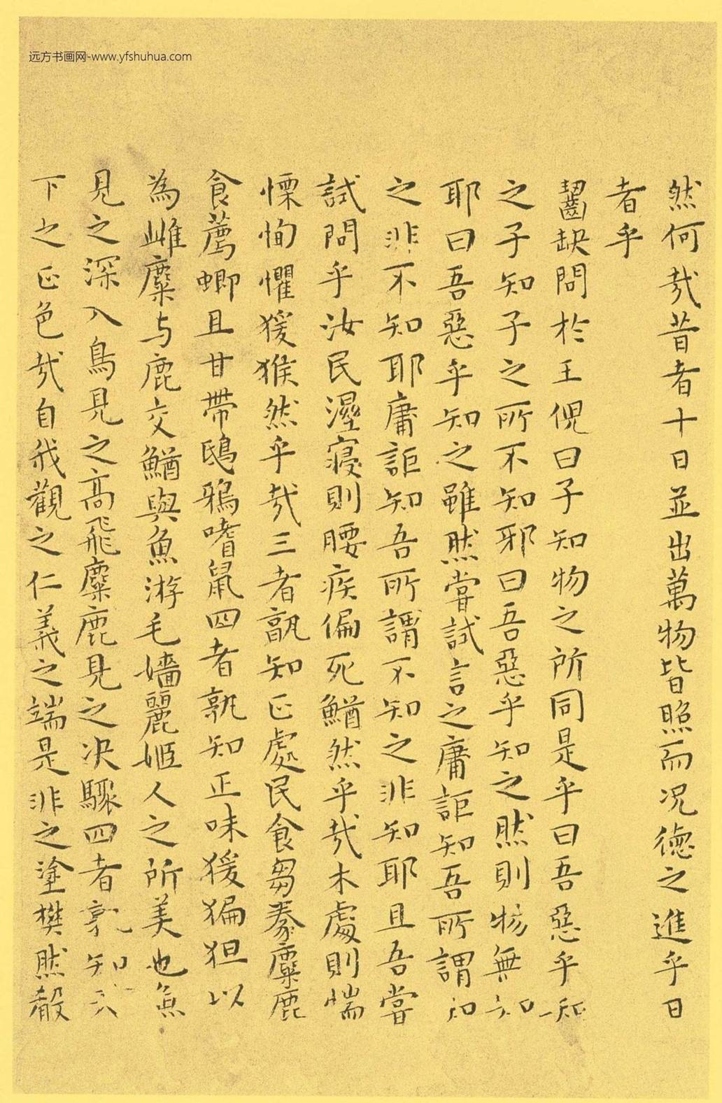 远方书画网-www.yfshuhua.com
然何哉昔者十日並出萬物皆照而况德之進乎日
者乎
齧缺問於王倪曰子知物之所同是乎曰吾惡乎知
之子知子之所不知邪曰吾惡乎知之然則物無知
耶曰吾惡乎知之雖然嘗試言之庸詎知吾所謂知
之非不知耶庸詎知吾所謂不知之非知耶且吾嘗
試問乎汝民溼寢則腰疾偏死鰌然乎哉木處則惴
慄恂懼猨猴然乎哉三者孰知正處民食芻豢麋鹿
食薦蝍且甘帶鴟鴉嗜鼠四者孰知正味猨猵狙以
為雌麋与鹿交鰌與魚游毛嬙麗姬人之所美也魚
見之深入鳥見之高飛麋鹿見之决驟四者孰知天
下之正色哉自我觀之仁義之端是非之塗樊然殽